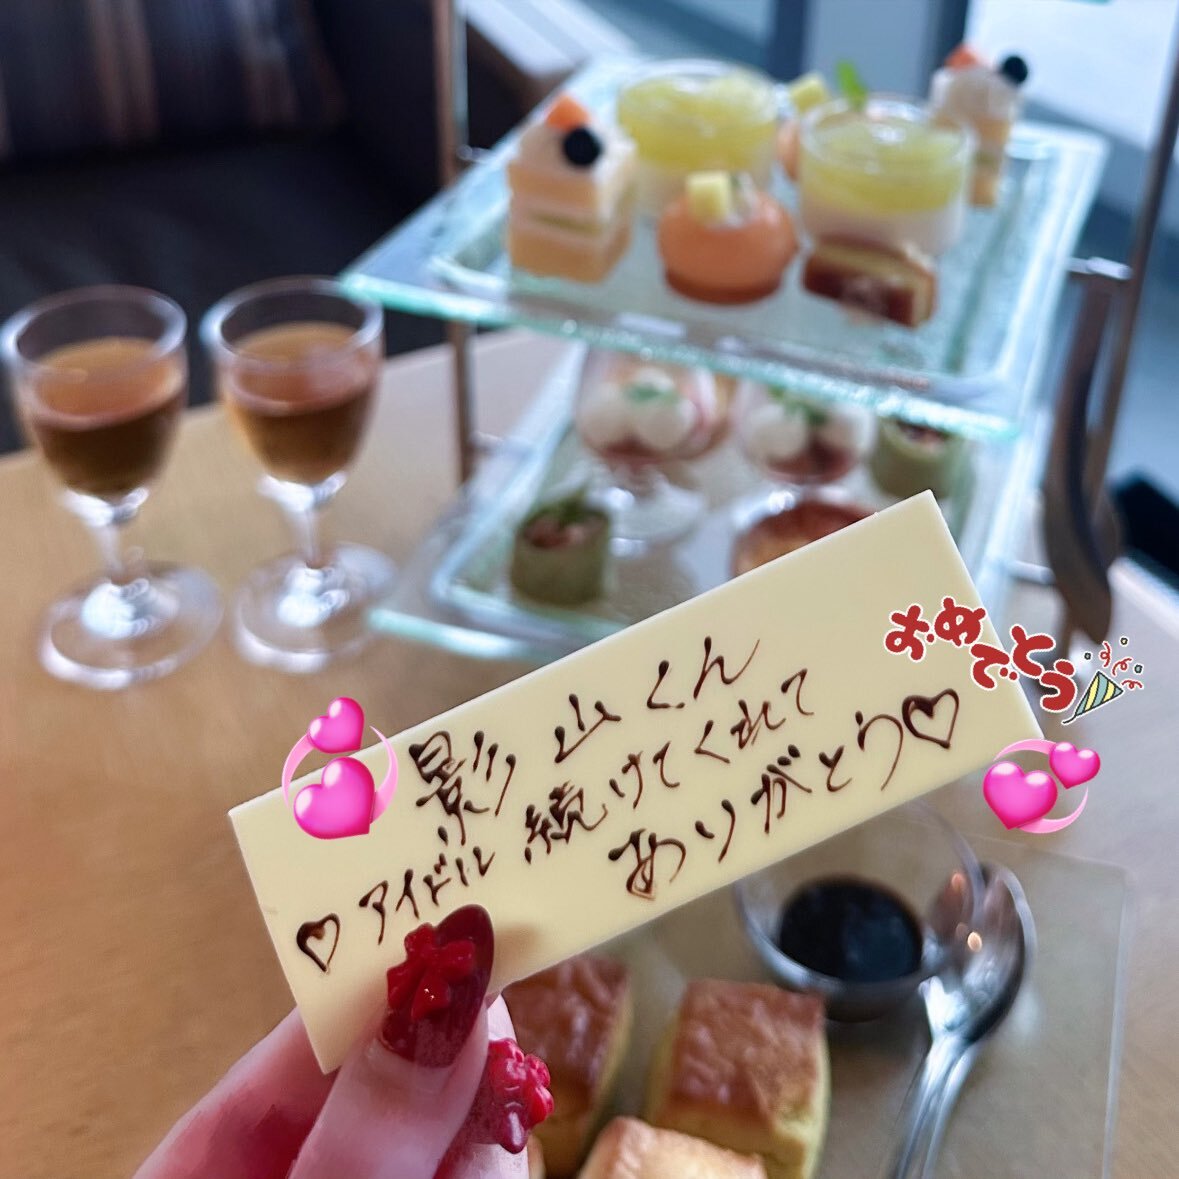 影山くん
アイドル続けてくれて
ありがとう♡
♡
おめでとう